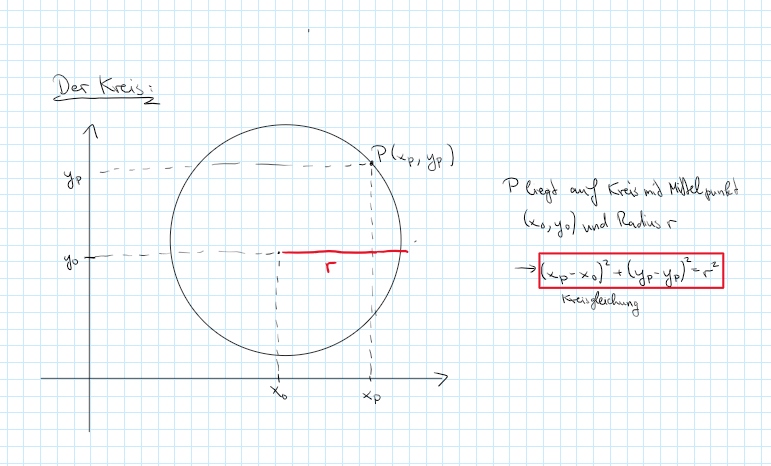 Der Kreis:
P(xₚ, yₚ)
yₚ
y₀
r
x₀
xₚ
P liegt auf Kreis mit Mittelpunkt
(x₀, y₀) und Radius r
→ (xₚ-x₀)² + (yₚ-yₚ)² = r²
Kreisgleichung